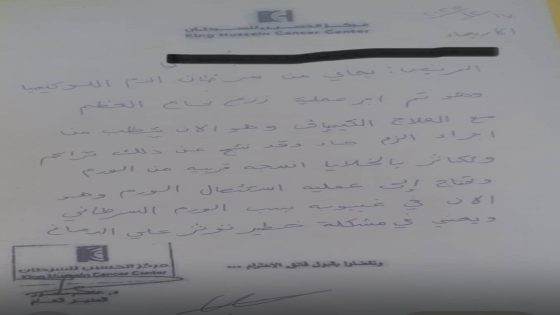 مركز الحسين للسرطان
King Hussein Cancer Center
الاربعاء
المريض: يعاني من سرطان الدم اللوكيميا
وهو تم اجراء عملية زرع نخاع العظم
مع العلاج الكيماوي وهو الان يطلب من
اجراء الزم حاد وقد نتج عن ذلك تراكم
وتكاثر بالخلايا انسجة قريبه من الورم
وتحتاج إلى عمليه استئصال الورم وهو
الان في غيبوبه بسبب الورم السرطاني
ويعني في مشكلة خطير تؤثر علي الدماغ
وتفضلوا بقبول فائق الاحترام ...
مركز الحسين للسرطان
King Hussein Cancer Center
المدير العام